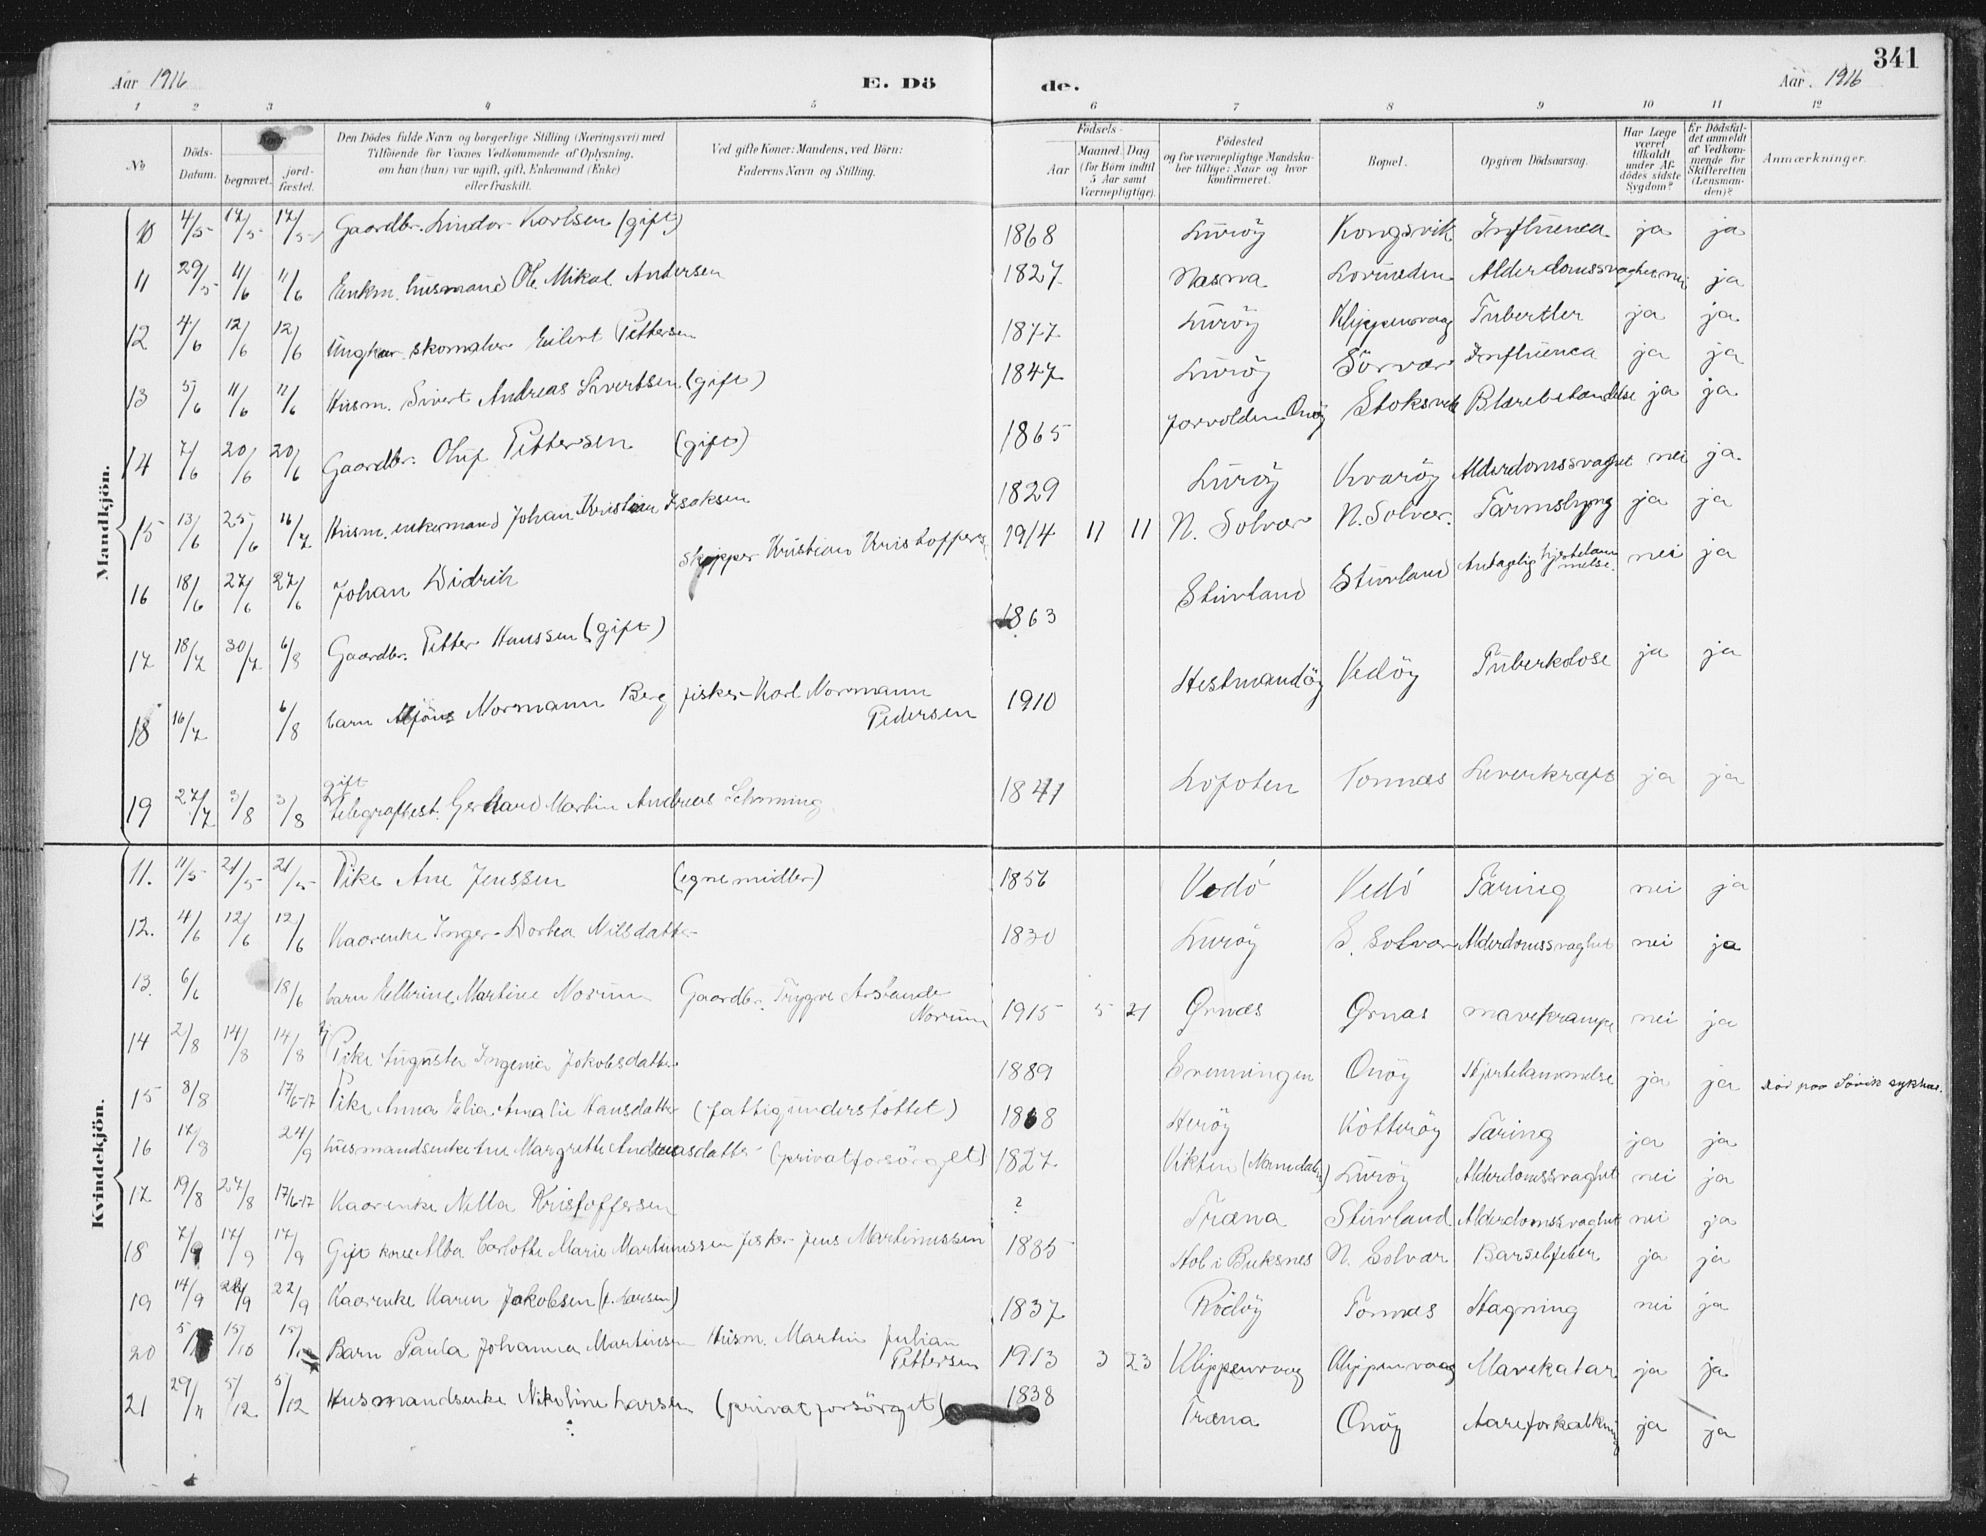 341
Aar 1916 E. Dö de. Aar 1916
1 2 3 4 5 6 7 8 9 10 11 12
No Döds-Datum. begravet. jord-fæstet. Den Dödes fulde Navn og borgerlige Stilling (Næringsvei) med Tilföiende for Voxnes Vedkommende af Oplysning, om han (hun) var ugift, gift, Enkemand (Enke) eller fraskilt. Ved gifte Koner: Mandens, ved Börn: Faderens Navn og Stilling. Födsels- Aar Maaned Dag (for Börn indtil 5 Aar samt Værnepligtige). Födested og for værnepligtige Mandska-ber tillige: Naar og hvor konfirmeret. Bopæl. Opgiven Dödsaarsag. Har Læge været tilkaldt under Af-dödes sidste Sygdom? Er Dödsfal-det anmeldt af Vedkom-mende for Skifteretten (Lensman-den)? Anmærkninger.
Mandkjön.
10 4/5 17/5 17/5 Gaardbr. Lindor Karlsen (gift) 1868 Luröy Kongsvik Influenca ja ja
11 29/5 11/6 11/6 Enkm. husmand Ole Mikal Andersen 1827 Næsna Lovunden Alderdomssvaghet nei ja
12 4/6 12/6 12/6 Ungkar skomaker Eilert Pettersen 1877 Luröy Klippenvaag Tubertler ja ja
13 5/6 11/6 11/6 Husm. Sivert Andreas Sivertsen (gift) 1847 Luröy Sörvær Influenca ja ja
14 7/6 20/6 20/6 Gaardbr. Oluf Pettersen (gift) 1865 Jorvolden Onöy Stoksvik Blærebetændelse ja ja
15 13/6 25/6 16/7 Husm. enkemand Johan Kristian Isaksen 1829 Luröy Kvaröy Alderdomssvaghet nei ja.
16 18/6 27/6 27/6 Johan Didrik Skipper Kristian Kristoffers. 1914 11 11 N. Solvær N. Solvær. Tarmslyng ja ja
17 18/7 30/7 6/8 Gaardbr. Petter Hanssen (gift) 1863 Stuvland Stuvland Antagelig hjertelammelse. nei ja
18 16/7 6/8 barn Alfons Normann Berg fisker Karl Normann Pedersen 1910 Hestmandöy Vedöy Tuberkolose ja ja
19 27/7 3/8 3/8 gift telegrafbest. Gerhard Martin Andreas Schöning 1841 Lofoten Tonnæs Leverkræft ja ja
Kvindekjön.
11. 11/5 21/5 21/5 Pike Ane Jenssen (egne midler) 1856 Vedö Vedö Tæring nei ja
12. 4/6 12/6 12/6 Kaarenke Inger Dortea Nilsdatter 1830 Luröy S. Solvær Alderdomssvaghet nei ja
13. 6/6 18/6 barn Ellbrine Martine Norum Gaardbr. Trygve Norum 1915 5 21 Ørnæs Ørnæs mavekrampe nei ja
14 2/8 14/8 14/8 Pike Augusta Ingenia Jakobsdatter 1889 Onöy Hjertelammelse ja ja död paa Sövik sykhus.
15 8/8 17/6-17 Pike Anna Elia Amalie Hansdatter (fattigunderstöttet) 1868 Heröy Kötteröy Tæring ja ja
16 17/8 24/9 husmandsenke Ane Margrethe Andreasdatter (privatforsörget) 1827 Vikten (Namdalen) Luröy Alderdomssvaghet nei ja
17 19/8 27/8 17/6-17 Kaarenke Nella Kristoffersen ? Træna Stuvland Alderdomssvaghet nei ja
18 7/9 17/9 17/9 Gift kone Alba Carlotte Marie Martinussen fisker Jens Martinussen 1885 Hol i Buksnes N. Solvær Barselfeber ja ja
19 14/9 22/9 22/9 Kaarenke Karen Jakobsen (f. Larsen) 1837 Rödöy Tonnæs Hagning nei ja
20 5/ 15/10 15/ Barn Paula Johanna Martinsen Husm. Martin Julian Pettersen 1913 3 23 Klippenvaag Klippenvaag Mavekatar ja ja
21 29/11 5/12 5/12 Husmandsenke Nikoline Larsen (privat forsörget) 1838 Træna Onöy Aareforkalkning ja ja